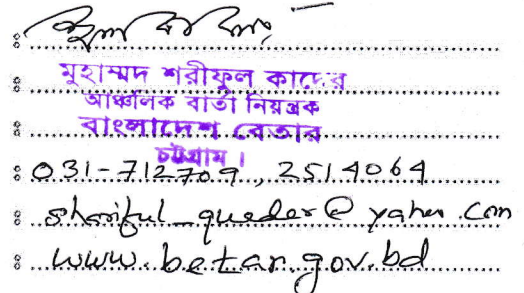 মুহাম্মদ শরীফুল কাদের
আঞ্চলিক বার্তা নিয়ন্ত্রক
বাংলাদেশ বেতার
চট্টগ্রাম ।
: 031-712709, 2514064
: shariful_quader@yahoo.com
: www.betar.gov.bd